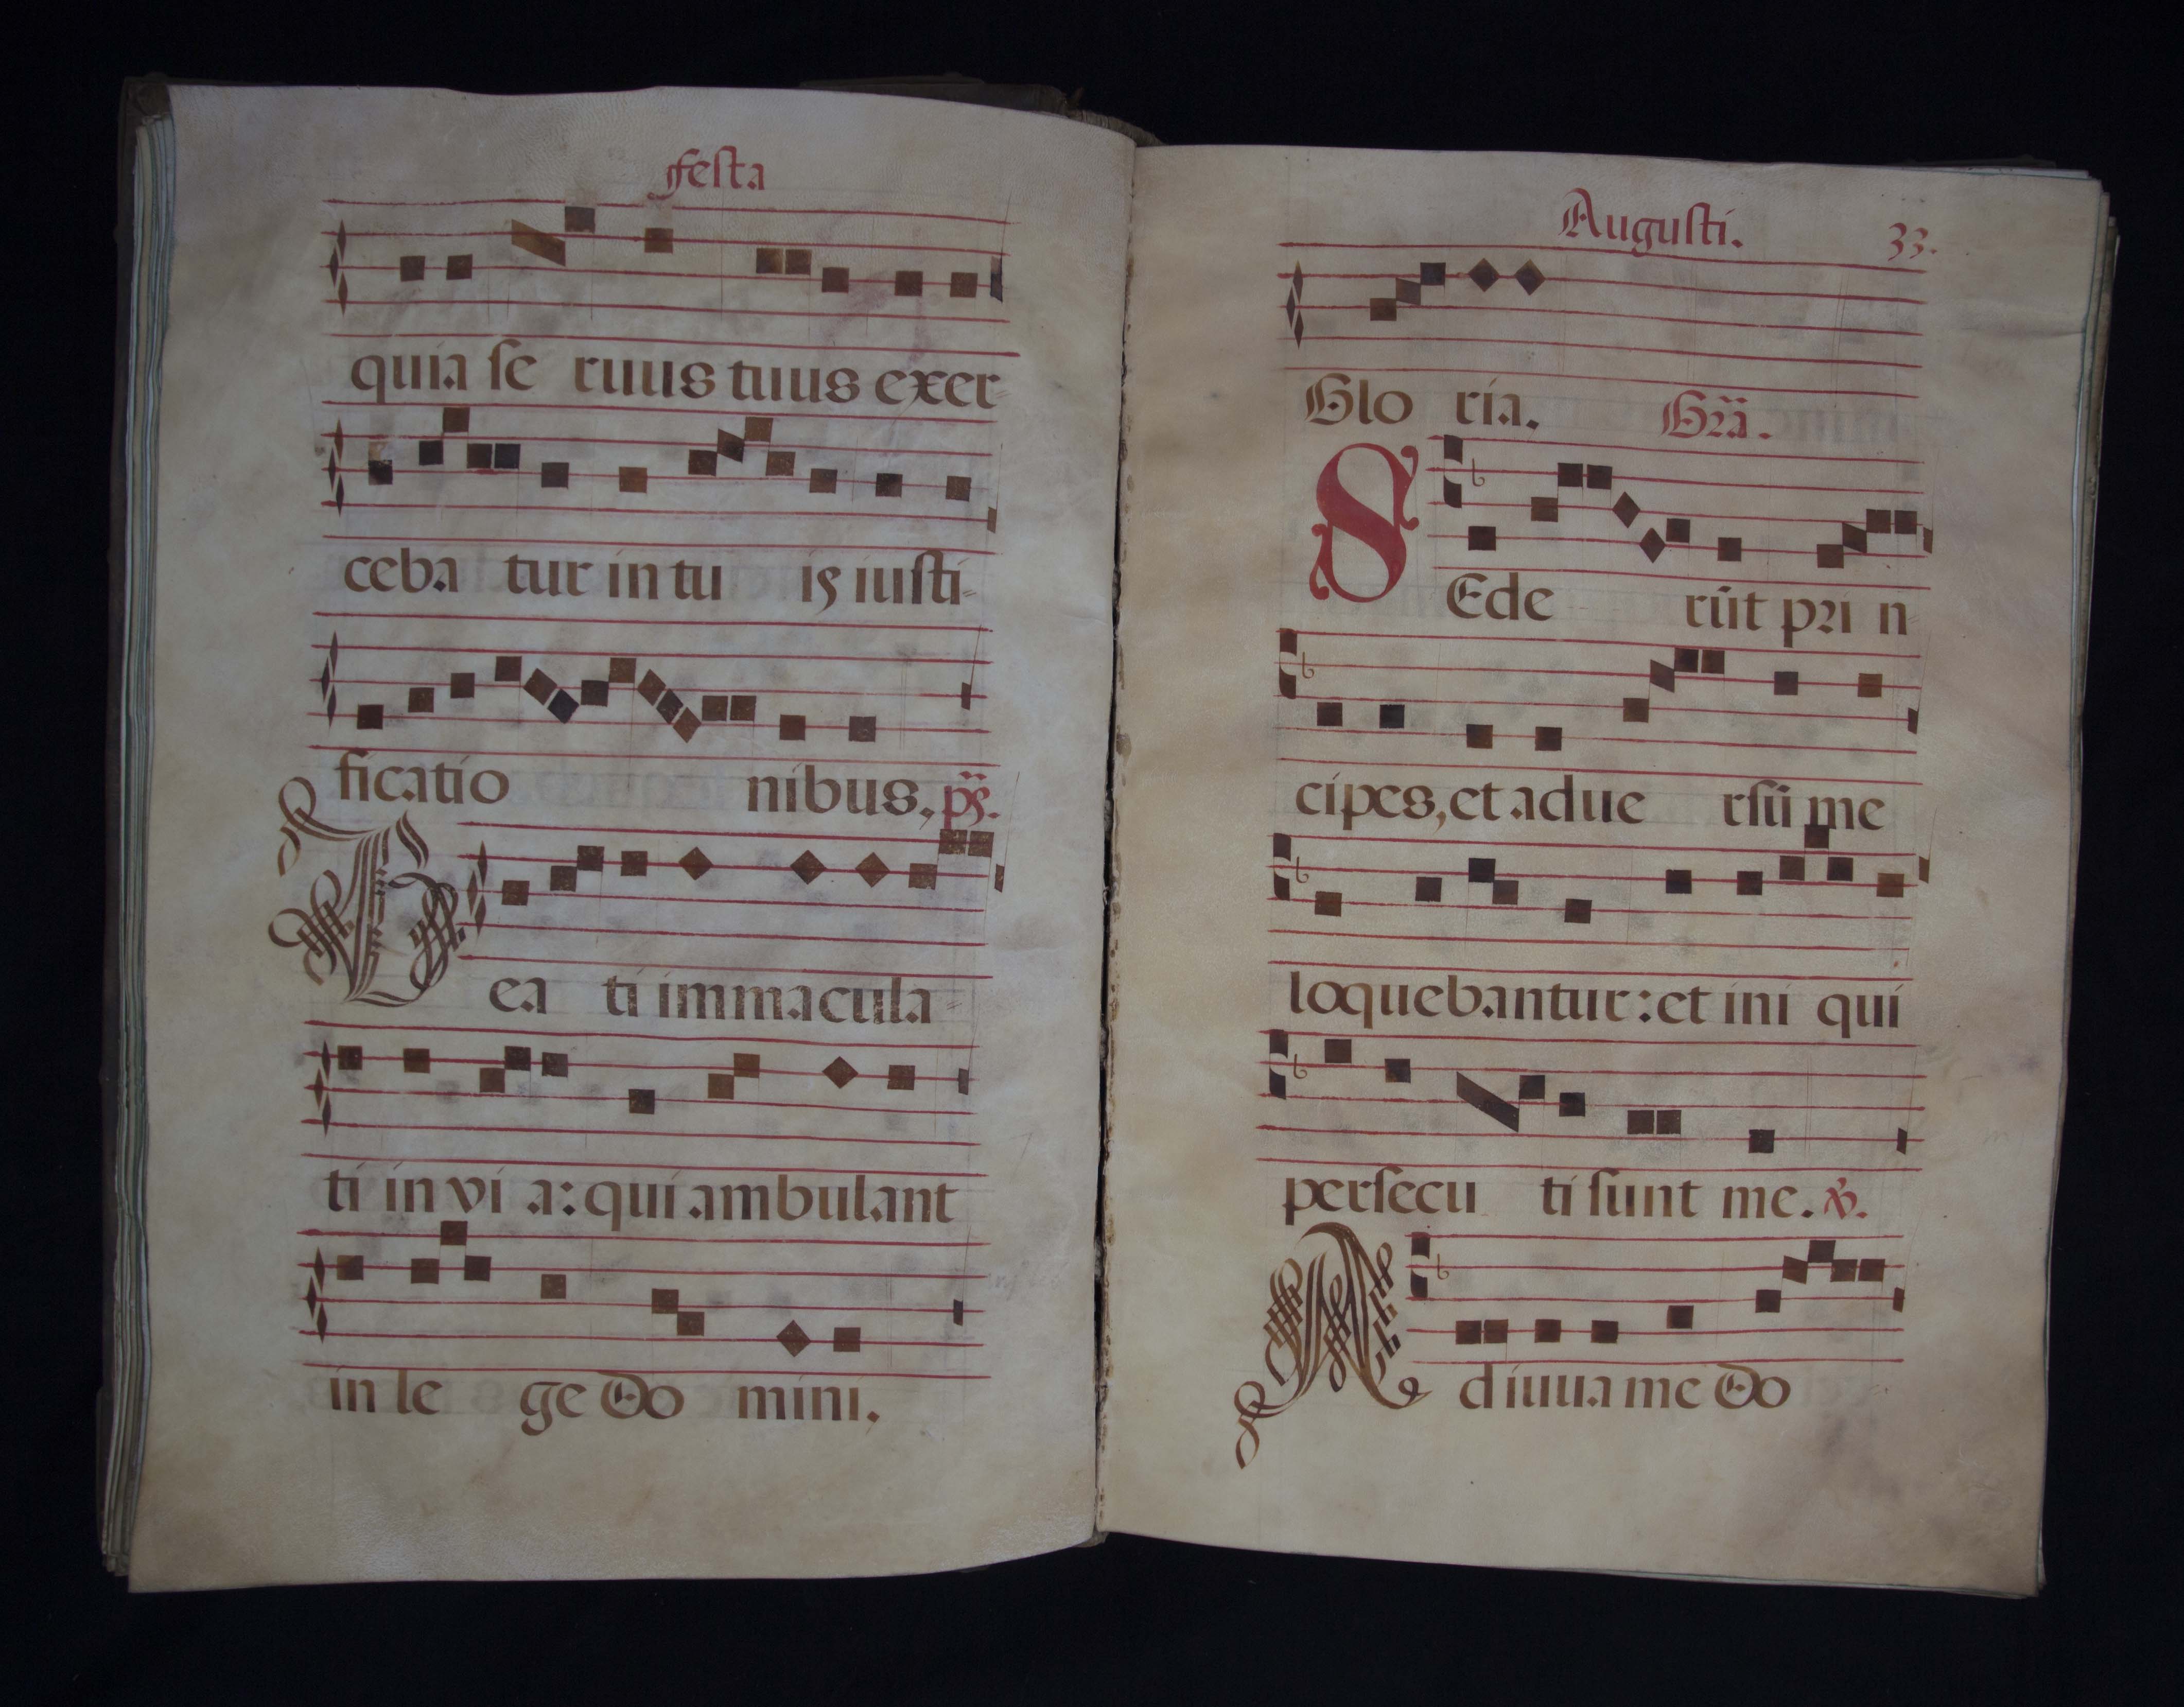 festa
quia se ruus tuus exer-
ceba tur in tu is iusti-
ficatio nibus, ps.
Bea ti immacula-
ti in vi a: qui ambulant
in le ge Do mini.
Augusti. 33.
Glo ria. Gra.
SEde rūt pri n-
cipes, et adue rsū me
loquebantur: et ini qui
persecu ti sunt me. ℣.
Adiuua me Do